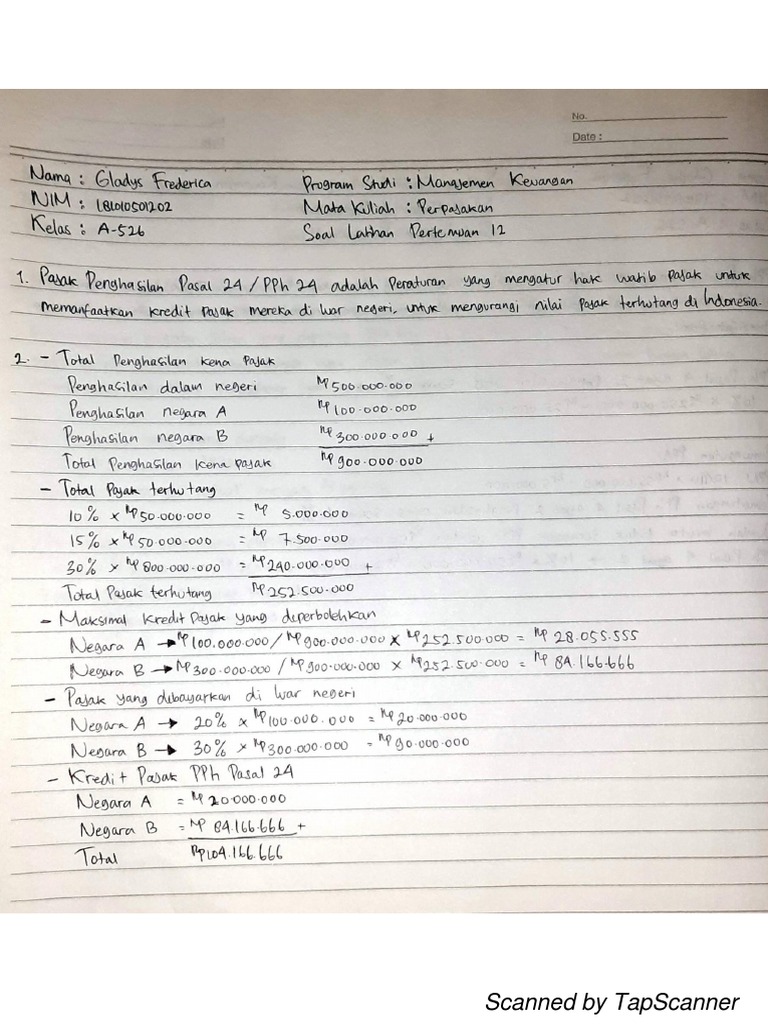 No.
Date :
Nama : Gladys Frederica Program Studi : Manajemen Keuangan
NIM : 181010501202 Mata Kuliah : Perpajakan
Kelas : A-526 Soal Latihan Pertemuan 12
1. Pajak Penghasilan Pasal 24 / PPh 24 adalah Peraturan yang mengatur hak wajib pajak untuk
memanfaatkan kredit pajak mereka di luar negeri, untuk mengurangi nilai pajak terhutang di Indonesia.
2. - Total Penghasilan kena pajak
Penghasilan dalam negeri Rp 500.000.000
Penghasilan negara A Rp 100.000.000
Penghasilan negara B Rp 300.000.000 +
Total Penghasilan kena pajak Rp 900.000.000
- Total Pajak terhutang
10 % x Rp 50.000.000 = Rp 5.000.000
15 % x Rp 50.000.000 = Rp 7.500.000
30 % x Rp 800.000.000 = Rp 240.000.000 +
Total Pajak terhutang Rp 252.500.000
- Maksimal Kredit Pajak yang diperbolehkan
Negara A → Rp 100.000.000 / Rp 900.000.000 x Rp 252.500.000 = Rp 28.055.555
Negara B → Rp 300.000.000 / Rp 900.000.000 x Rp 252.500.000 = Rp 84.166.666
- Pajak yang dibayarkan di luar negeri
Negara A → 20% x Rp 100.000.000 = Rp 20.000.000
Negara B → 30% x Rp 300.000.000 = Rp 90.000.000
- Kredit Pajak PPh Pasal 24
Negara A = Rp 20.000.000
Negara B = Rp 84.166.666 +
Total Rp 104.166.666
Scanned by TapScanner